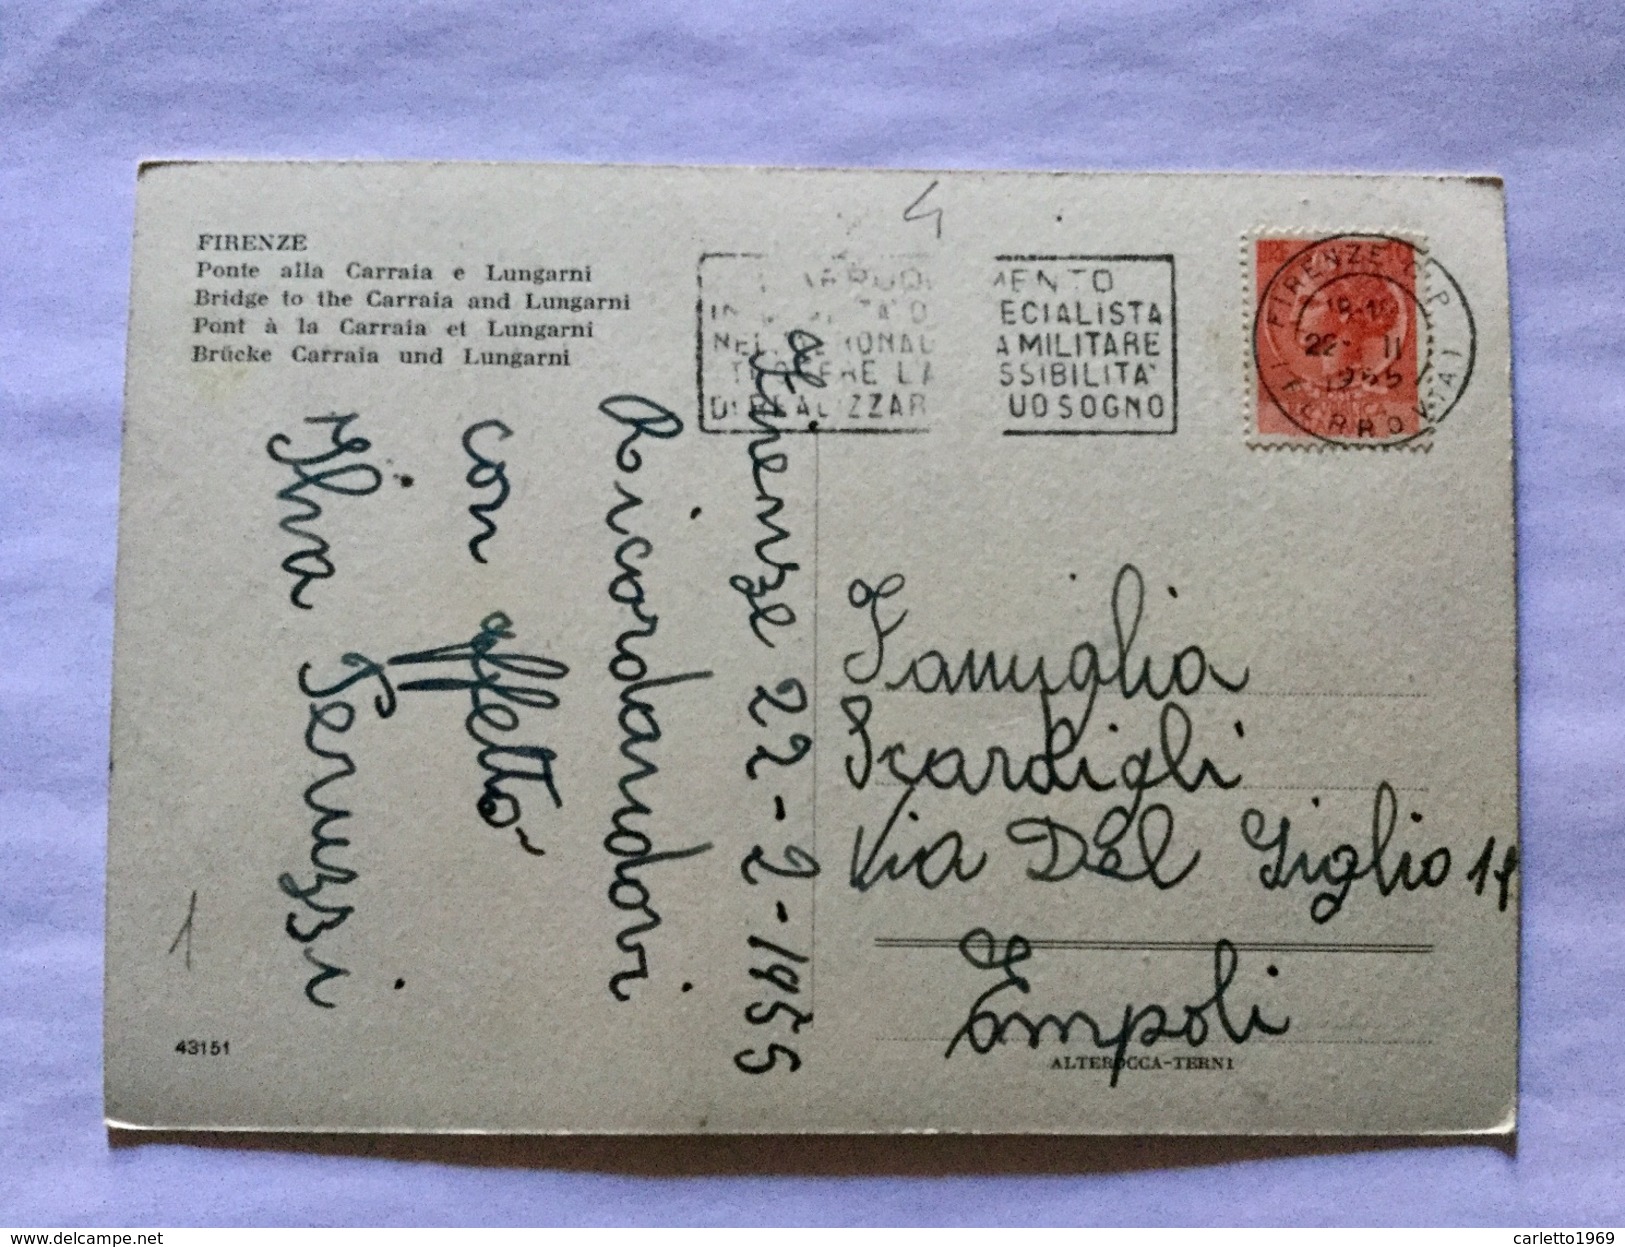 FIRENZE
Ponte alla Carraia e Lungarni
Bridge to the Carraia and Lungarni
Pont à la Carraia et Lungarni
Brücke Carraia und Lungarni
4
MENTO
ECIALISTA
A MILITARE
SSIBILITA'
DI REALIZZAR UO SOGNO
FIRENZE
FERROVIA
22 II
1955
Firenze 22-2-1955
Ricordandovi
con affetto
Peruzzi
Famiglia
Scardigli
Via Del Giglio 14
Empoli
1
43151
ALTEROCCA-TERNI
delcampe.net
carletto1969